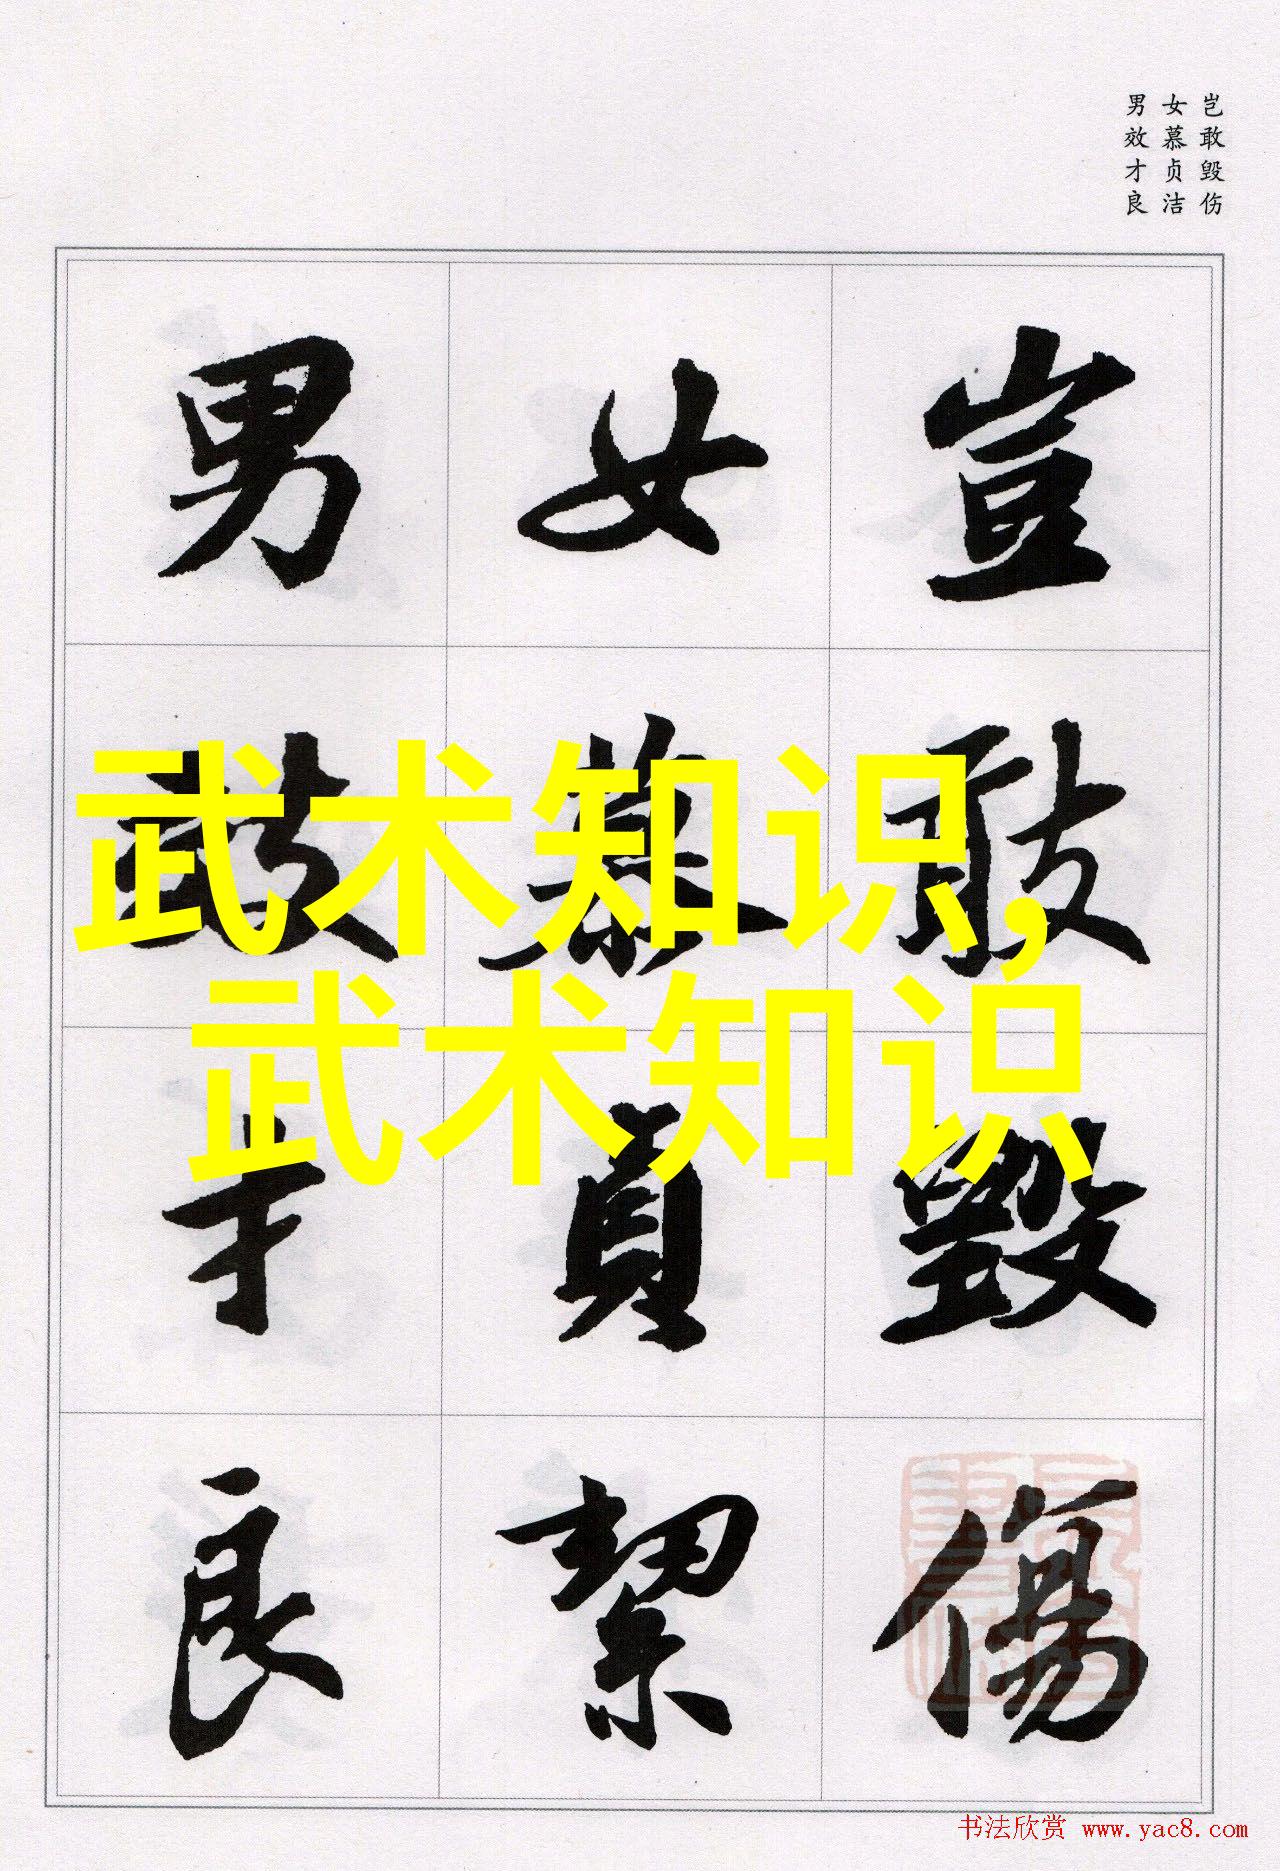 岂敢毁伤
女慕贞洁
男效才良
豈敢毀傷
女慕貞絜
男效才良
武术知识,
武术知识
书法欣赏 www.yac8.com